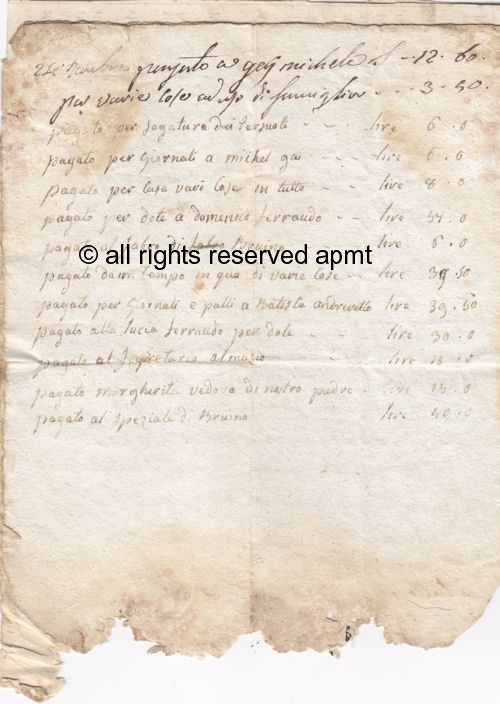 pagato a gaij michele L - - 12 . 60 .
per varie cose ad uso di famiglia - - . 3 . 50 .
pagato per segatura dei lire 6 . 0
pagato per giornati a michel gai - - - lire 6 . 0
pagato per casa vari cose in tutto - lire 8 . 0
pagato per dote a domenico ferraudo - - - lire 54 . 0
pagato di Bruino lire 6 . 0
© all rights reserved apmt
pagato da un tempo in qua di varie cose - - lire 39 . 50
pagato per giornati e palli a Batista andrevetto lire 39 . 50
pagato alla lucia ferraudo per dote - - lire 30 . 0
pagato al segretario almasio - - lire 15 . 0
pagato margherita vedova di nostro padre - lire 15 . 0
pagato al speziale di Bruino lire 40 . 0